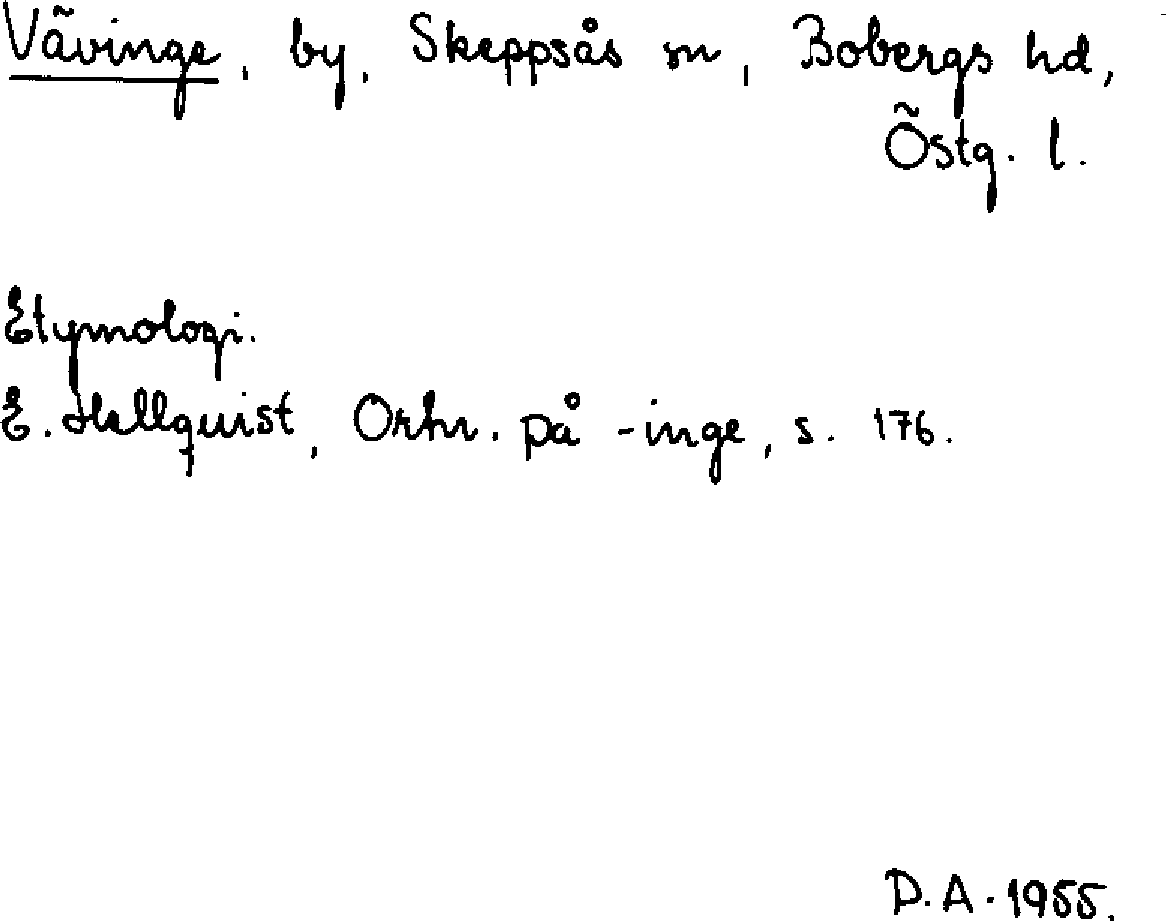 Vävinge, by, Skeppsås sn, Bobergs hd,
Östg. l.
Etymologi.
E. Hellquist, Ortn. på -inge, s. 176.
D.A. 1955.